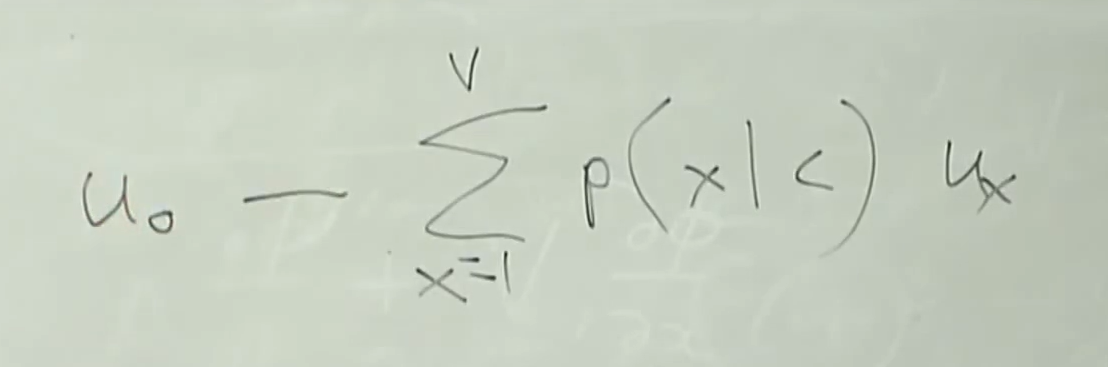 u₀ − ∑_{x=1}^{V} p(x|c) uₓ